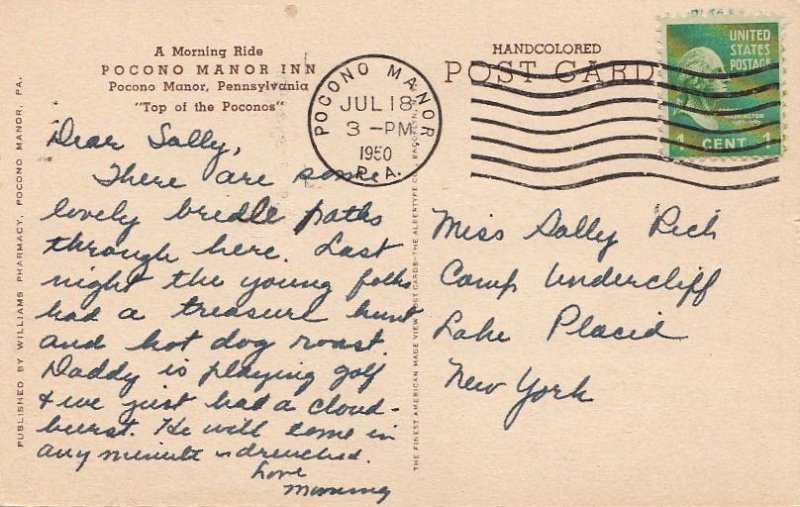 A Morning Ride
POCONO MANOR INN
Pocono Manor, Pennsylvania
"Top of the Poconos"
HANDCOLORED
POST CARD
UNITED
STATES
POSTAGE
1 CENT 1
POCONO MANOR
JUL 18
3 - PM
1950
P.A.
Dear Sally,
There are some
lovely bridle paths
through here. Last
night the young folks
had a treasure hunt
and hot dog roast.
Daddy is playing golf
& we just had a cloud-
burst. He will come in
any minute drenched.
Love
Mummy
Miss Sally Rich
Camp Undercliff
Lake Placid
New York
PUBLISHED BY WILLIAMS PHARMACY, POCONO MANOR, PA.
THE FINEST AMERICAN MADE VIEW POST CARDS-THE ALBERTYPE CO., BROOKLYN, N.Y.